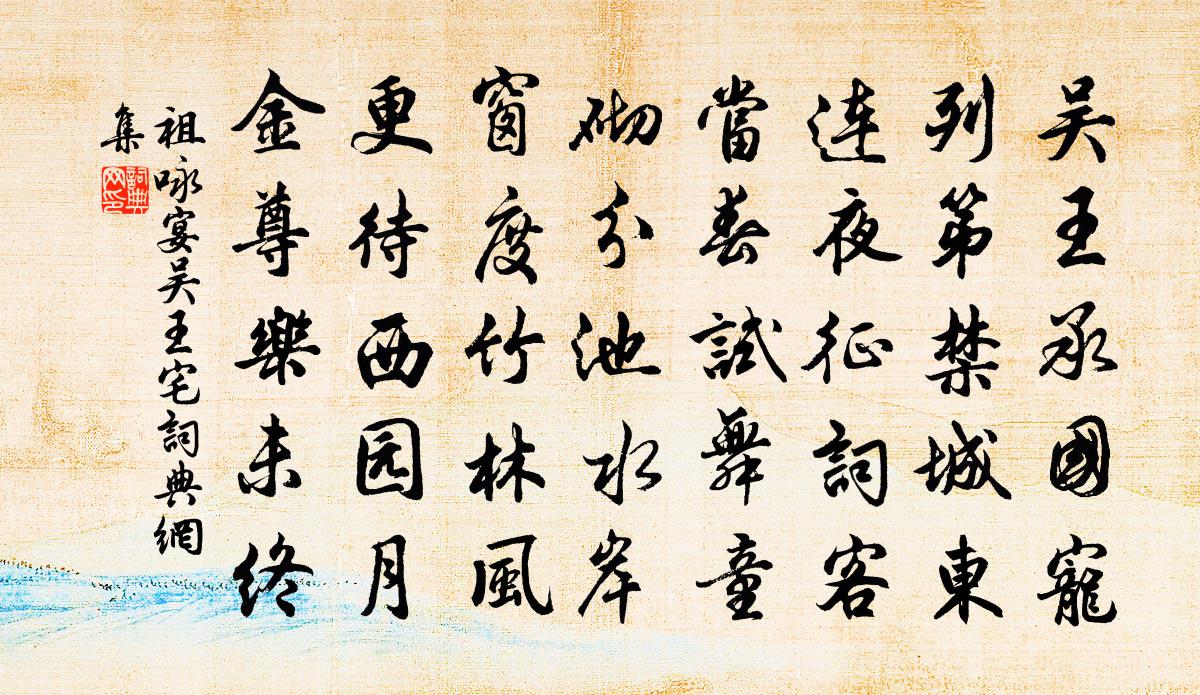 吴王承國寵
列第禁城東
连夜征詞客
當春試舞童
砌分池水岸
窗度竹林風
更待西园月
金尊樂未终
祖咏宴吴王宅詞典網
集
詞典網印